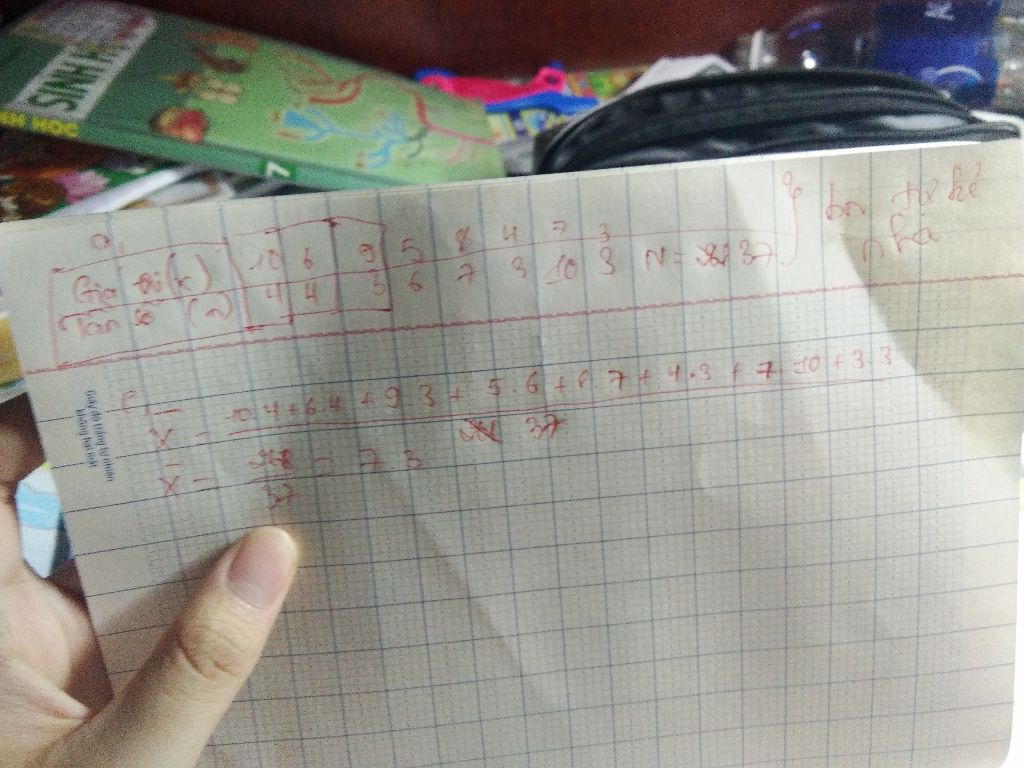 SINH H
a,
Giá trị (x) 10 6 9 5 8 4 7 3
Tần số (n) 4 4 3 6 7 3 10 3 N = 37
bn tự kẻ
nha
10.4+6.4+9.3+5.6+8.7+4.3+7.10+3.3
X = 37
X = 268/37 = 7,3
Giấy độ trắng tự nhiên
không hại mắt
7